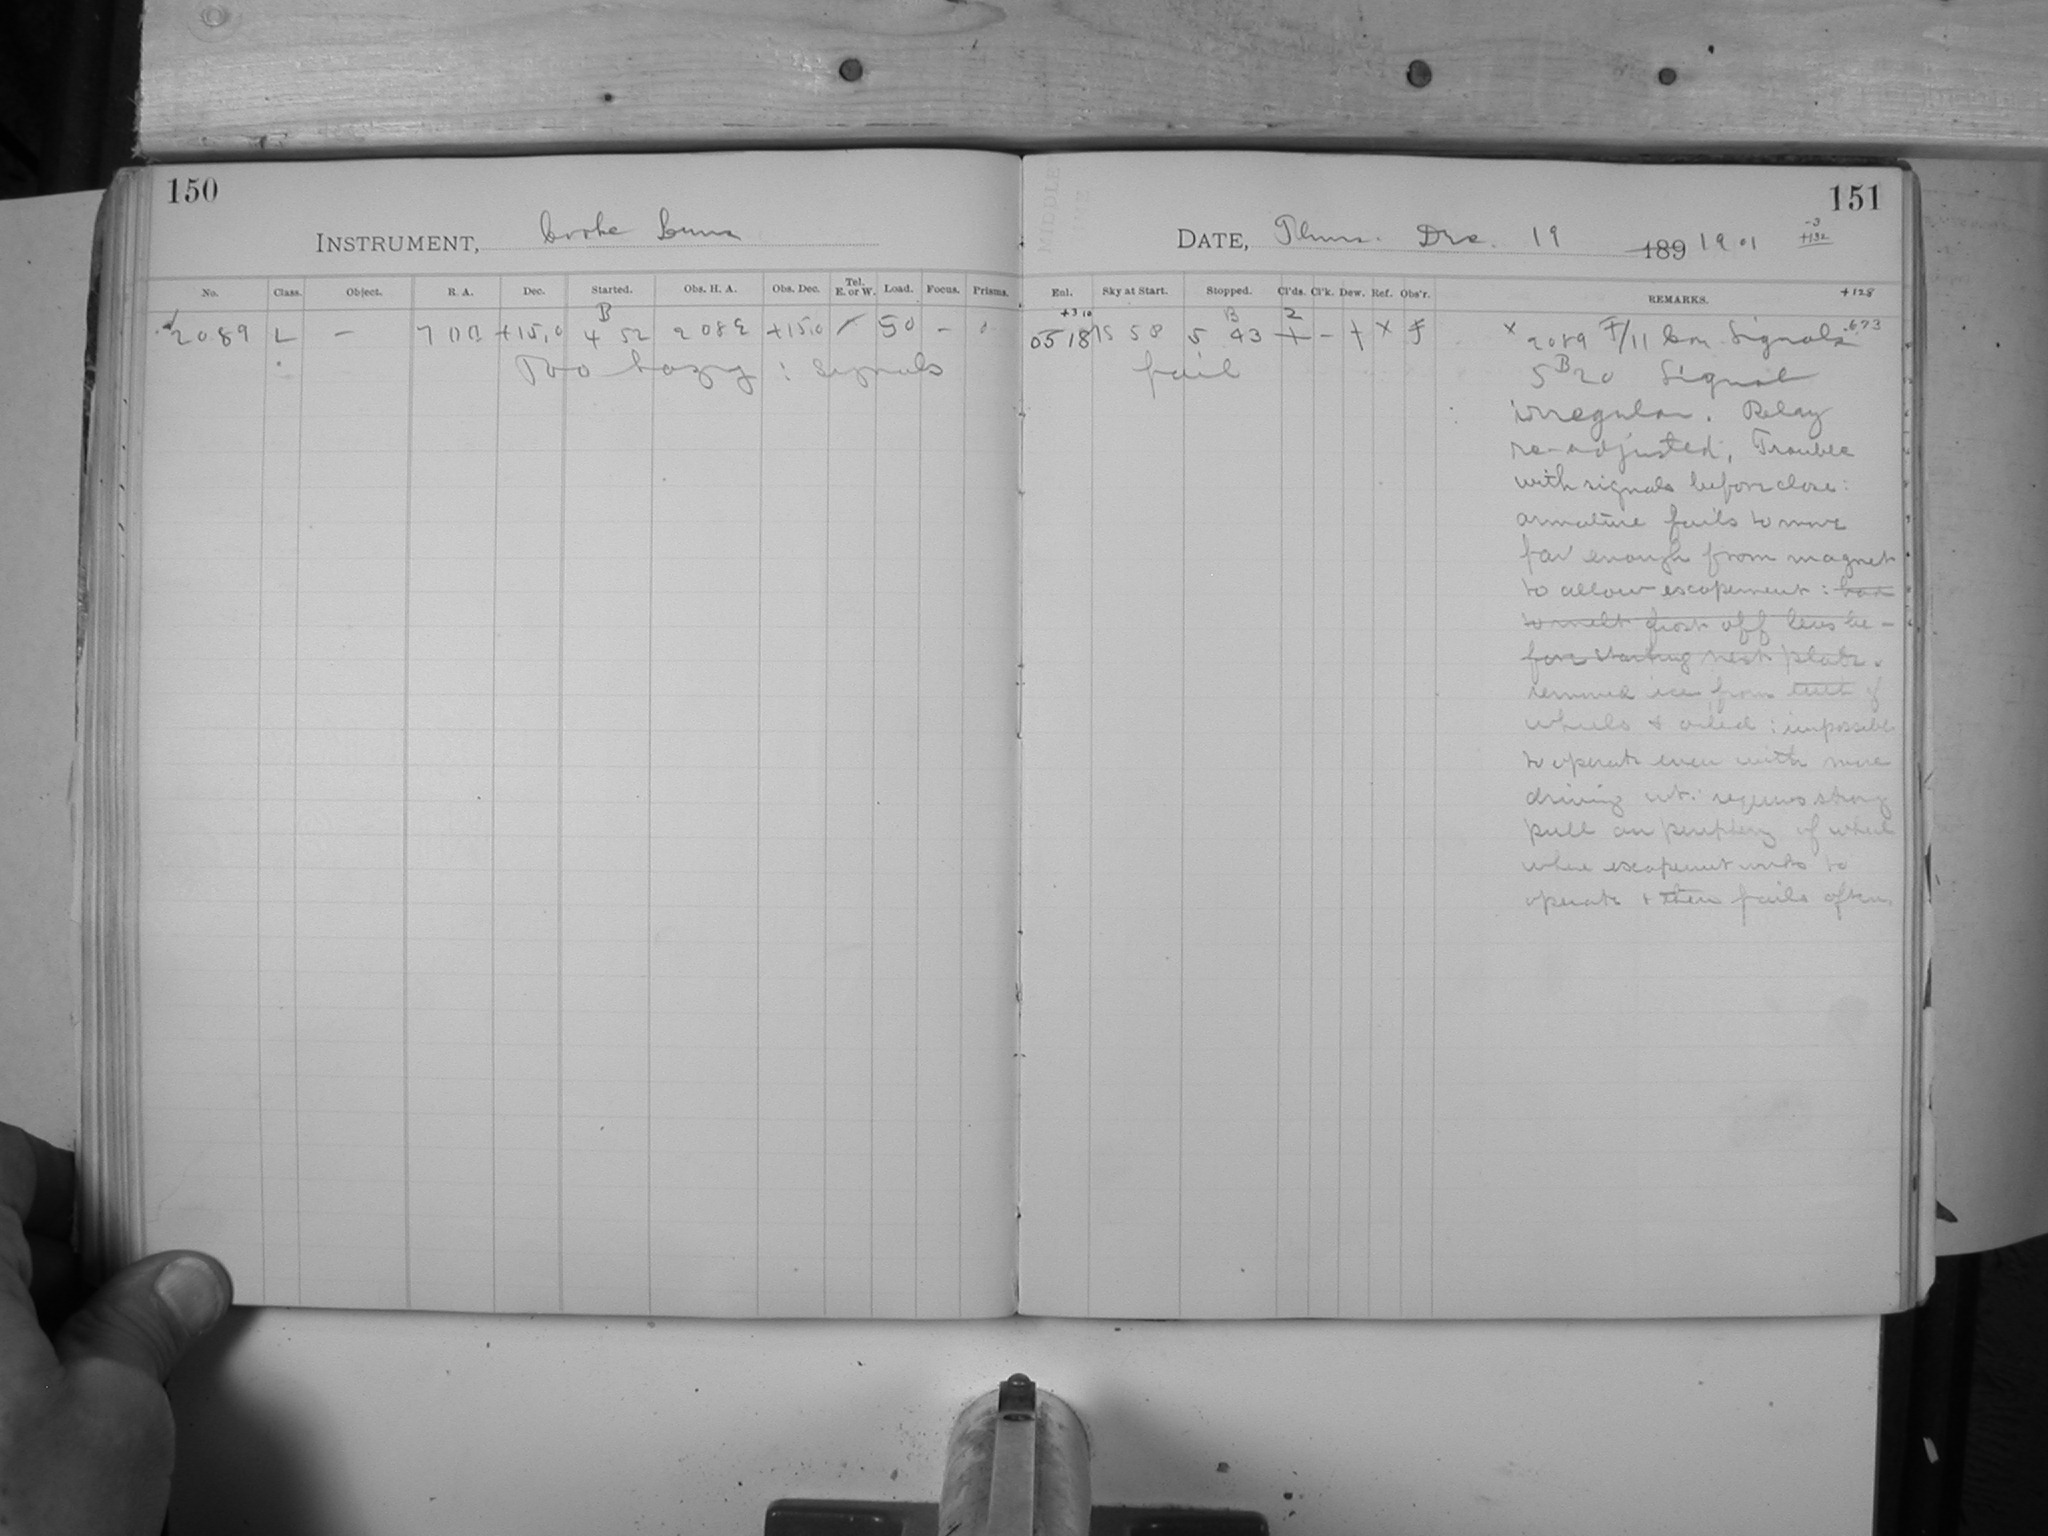 150
INSTRUMENT, Cooke Lens
No. Class. Object. R. A. Dec. Started. Obs. H. A. Obs. Dec. Tel. E. or W. Load. Focus. Prisms.
B
2089 L – 7 00 +15,0 4 52 2082 +15,0 50 –
Too hazy : signals
151
DATE, Thurs. Dec. 19 189 1901
-3
+132
Exl. Sky at Start. Stopped. Cl'ds. Cl'k. Dew. Ref. Obs'r. REMARKS. +128
+310 B 2
0518 15 58 5 43 + – + x F
fail
x 2089 F/11 Com. Signals .673
5 B 20 Signal
irregular. Relay
re-adjusted, Trouble
with signals before close:
armature fails to move
far enough from magnet
to allow escapement : had
to melt frost off lens be-
fore starting next plate.
removed ice from teeth of
wheels & oiled : impossible
to operate even with more
driving wt. : requires strong
pull on periphery of wheel
where escapement works to
operate & then fails often.